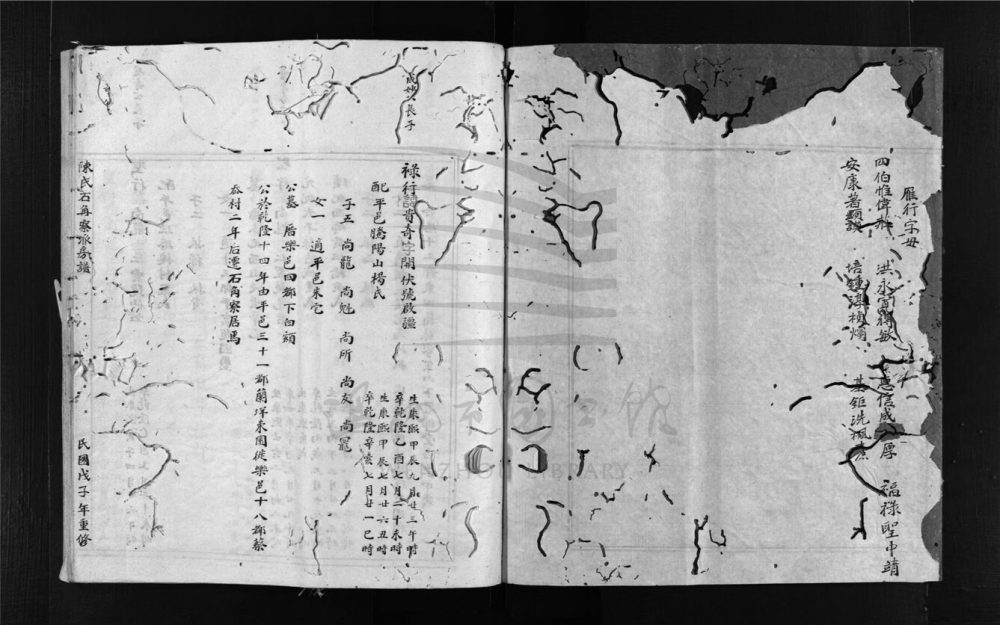 雁行字母
四伯惟偉 洪永 敏 思信威 厚 福祿聖中靖
安康 培鍾湛 基鉅洗
成妙 長子
祿行 貴奇字開伏號啟謐
生康熙甲辰九月廿三午時
卒乾隆乙酉七月二十未時
配平邑騰陽山楊氏
生康熙甲辰七月廿六丑時
卒乾隆辛亥七月廿一巳時
子五 尚龍 尚魁 尚所 尚友 尚冕
女一 適平邑朱宅
公墓 厝樂邑四都下白頭
公於乾隆十四年由平邑三十一都蘭洋東園徙樂邑十八都蔡
岙村二年后遷石角寮居焉
陳氏石角寮派房譜
民國戊子年重修
WENZHOU LIBRARY